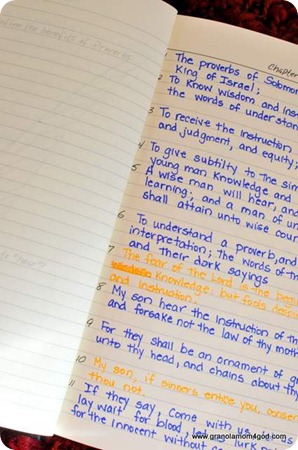 Chapter
1 The proverbs of Solomon
King of Israel;
2 To know wisdom and ins
the words of underst
3 To receive the instruction
and judgment, and equity;
4 To give subtilty to the sim
young man knowledge and
5 A wise man will hear, and
learning; and a man of un
shall attain unto wise coun
6 To understand a proverb, and
interpretation; the words of th
and their dark sayings
7 The fear of the Lord is the begin
knowledge, but fools despis
and instruction.
8 My son hear the instruction of th
and forsake not the law of thy moth
9 For they shall be an ornament of g
unto thy head, and chains about thy
10 My son, if sinners entice you, consent
thou not.
11 If they say, come with us,
lay wait for blood, let us lurk
for the innocent without
www.granolamom4god.com